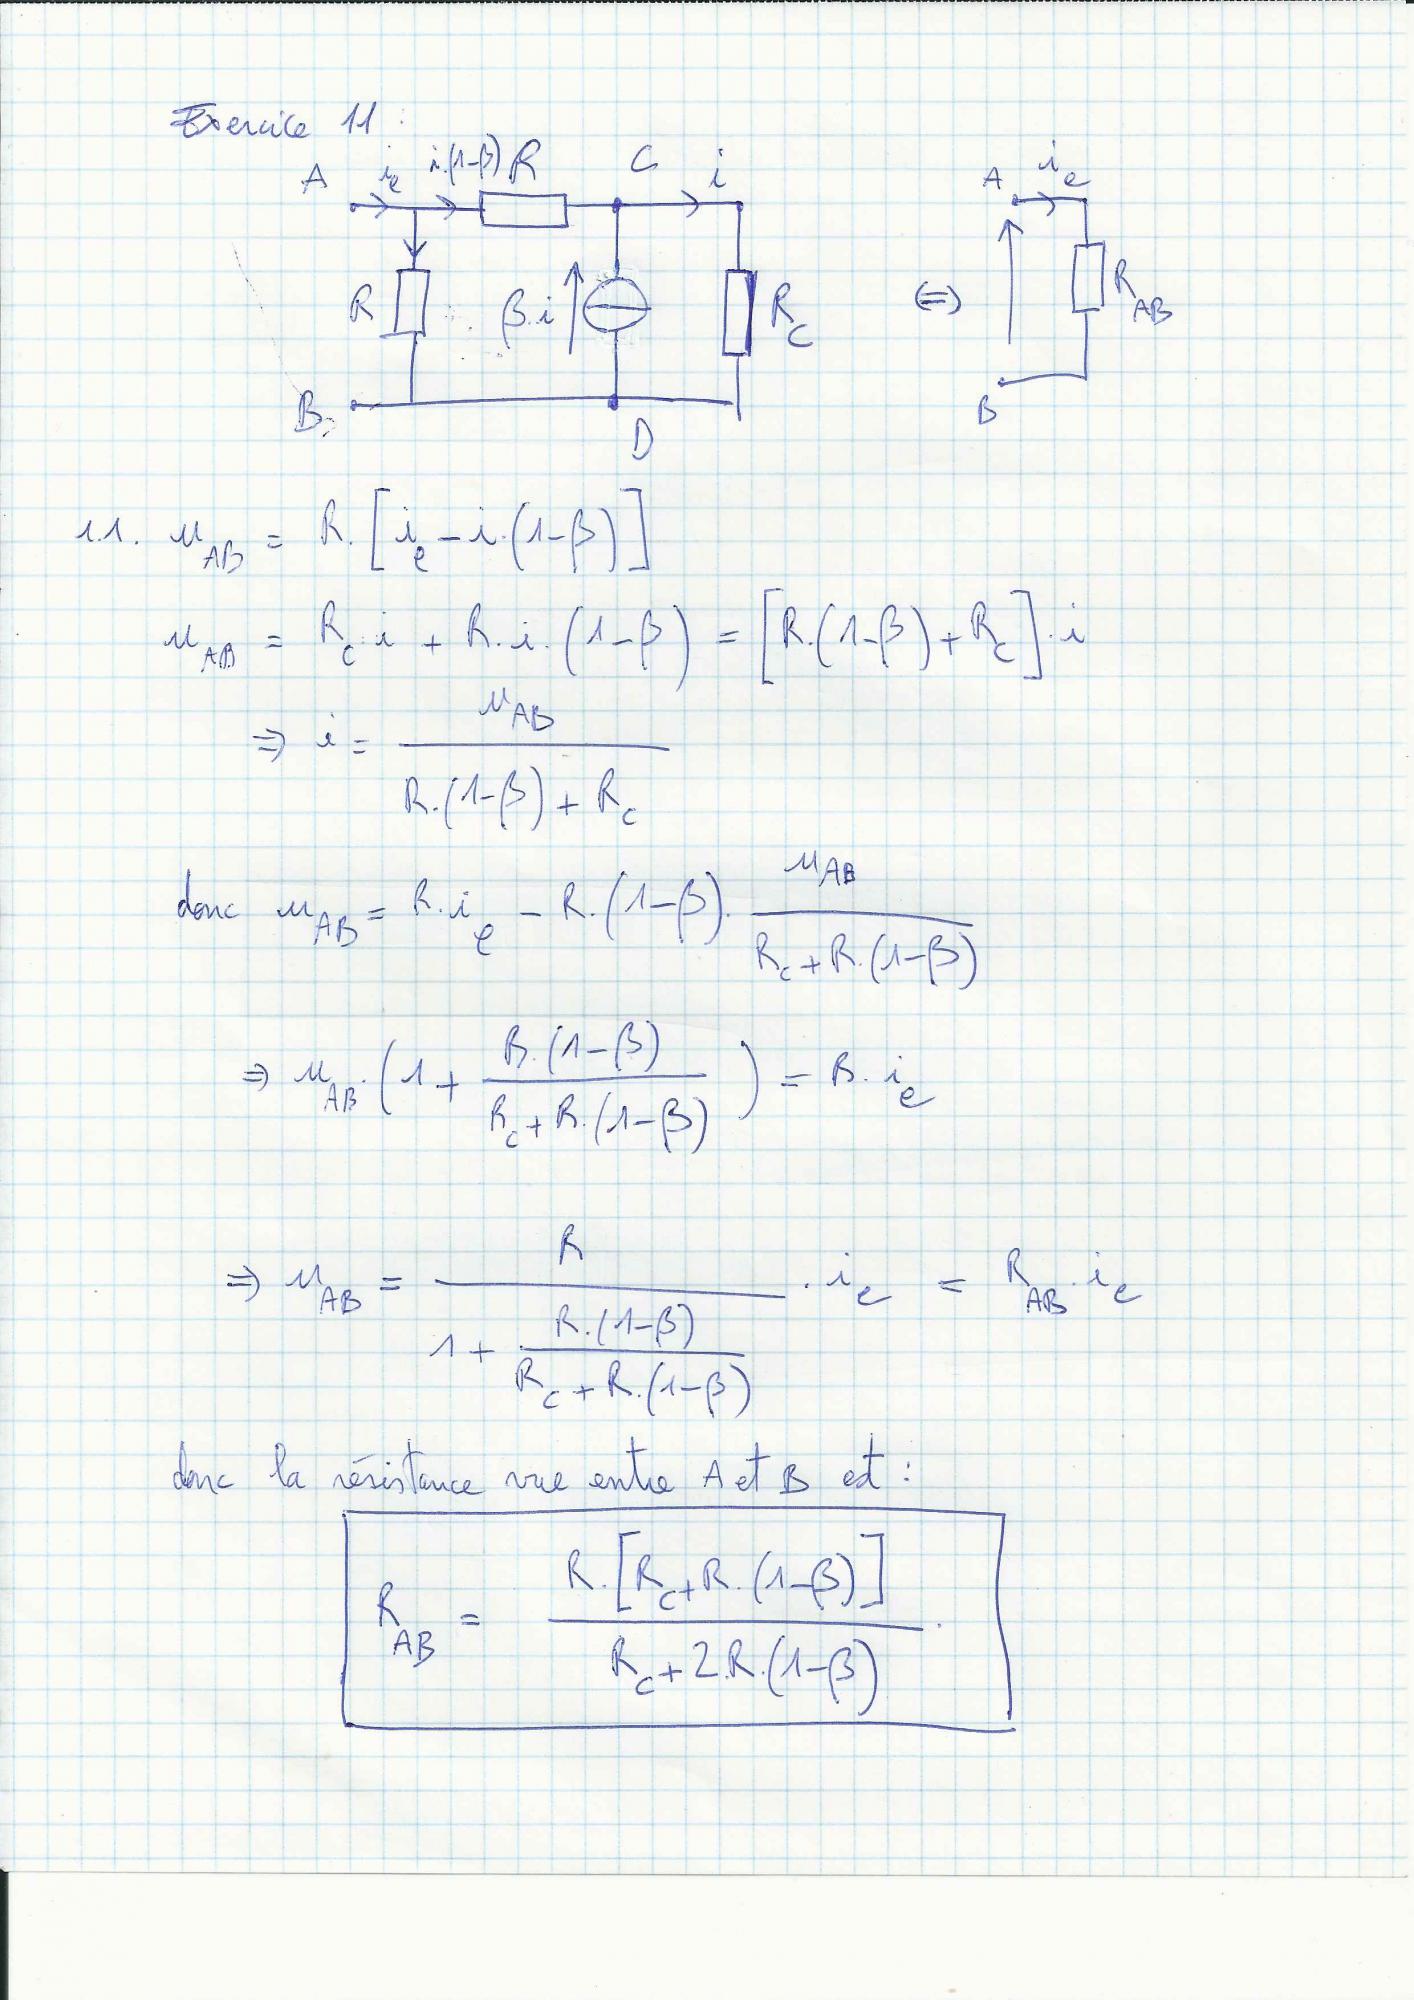 Exercice 11 :
A i_e i.(1-β) R C i
R β.i R_C
B D
⇔
A i_e
R_AB
B
1.1. u_AB = R.[i_e - i.(1-β)]
u_AB = R_C.i + R.i.(1-β) = [R.(1-β) + R_C].i
⇒ i = u_AB / (R.(1-β) + R_C)
donc u_AB = R.i_e - R.(1-β). u_AB / (R_C + R.(1-β))
⇒ u_AB.(1 + R.(1-β) / (R_C + R.(1-β))) = R.i_e
⇒ u_AB = R / (1 + R.(1-β) / (R_C + R.(1-β))) . i_e = R_AB.i_e
donc la résistance vue entre A et B est :
R_AB = R.[R_C + R.(1-β)] / (R_C + 2.R.(1-β)).